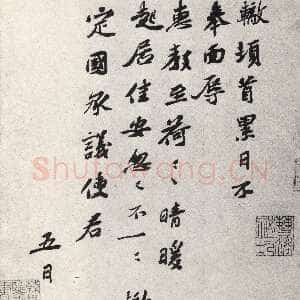 轍頓首累日不
奉面辱
惠教至荷〻晴暖
起居佳安忽〻不一〻轍
定國承議使君
五日
Shufawang.CN